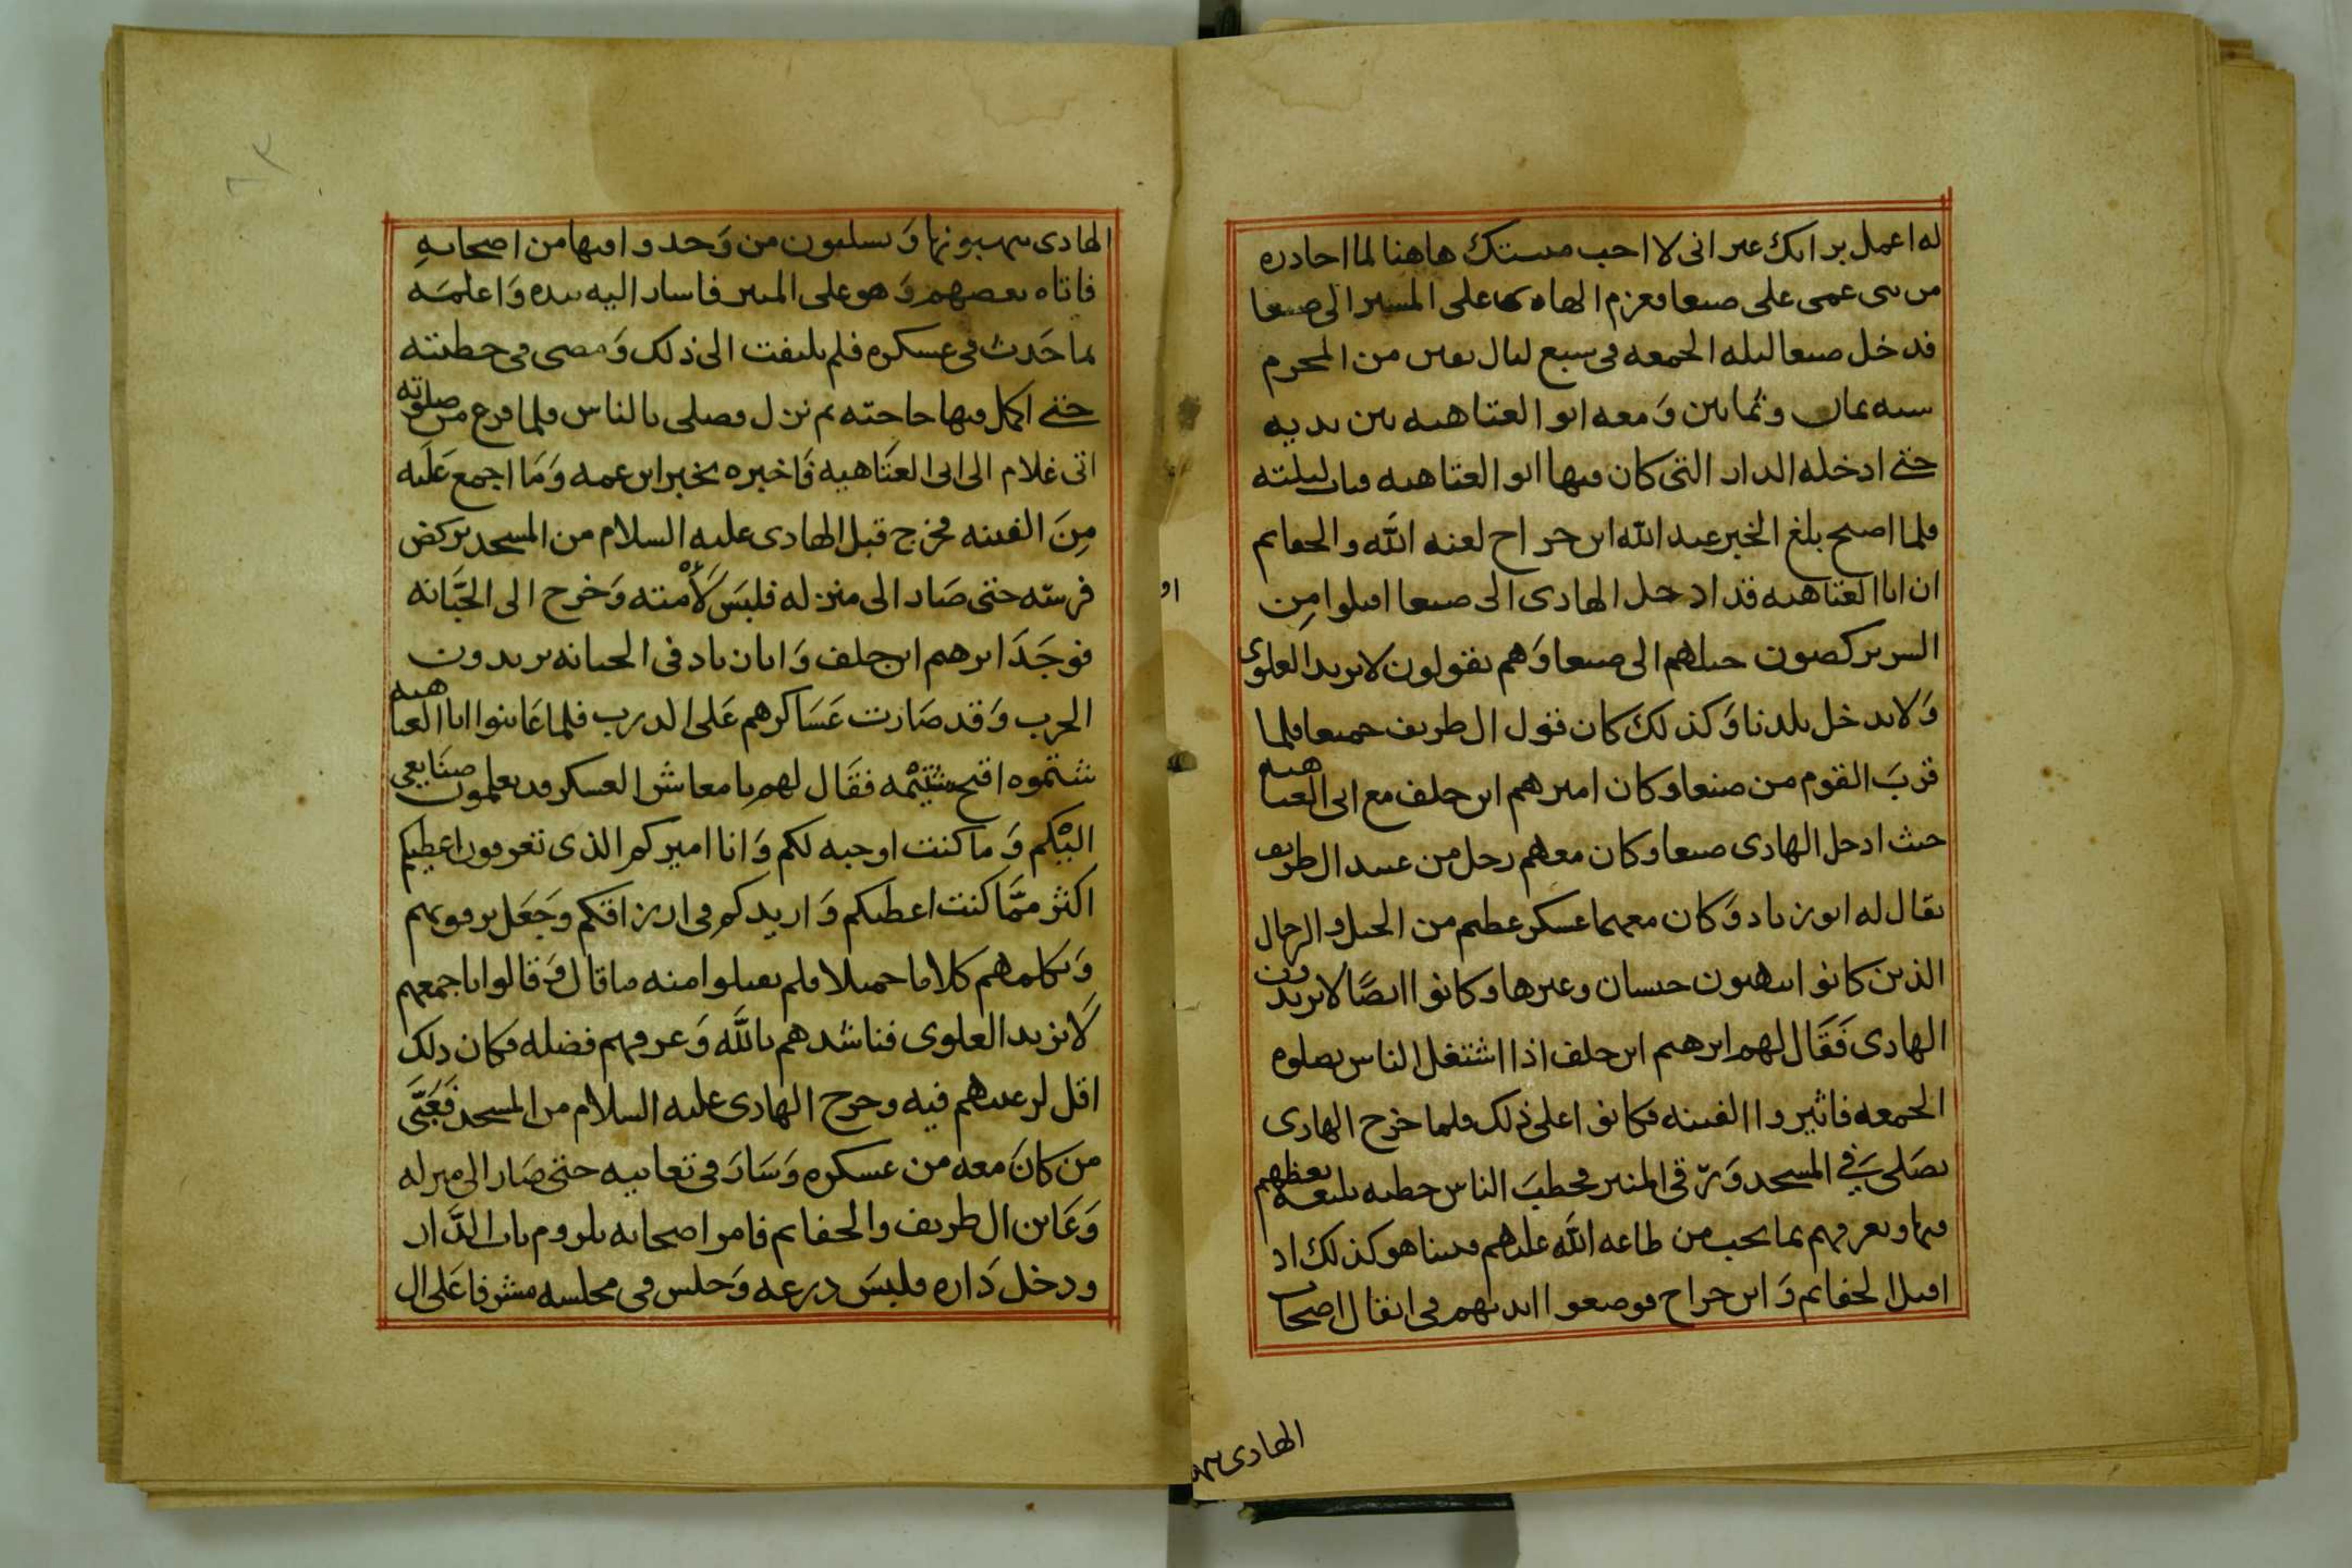 له اعمل برايك غير اني لا احب مبيتك هاهنا لما احاذره
من بني عمي على صنعا فعزم الهادي على المسير الى صنعا
فدخل صنعا ليله الجمعه في سبع ليال بقين من المحرم
سنه ثمان وثمانين وَمعه ابو العتاهيه بين يديه
حتى ادخله الدار التي كان فيها ابو العتاهيه فبات ليلته
فلما اصبح بلغ الخبر عبد الله ابن جراح لعنه الله والجفاتم
ان ابا العتاهيه قد ادخل الهادي الى صنعا اقبلوا مِن
السر يركضون خيلهم الى صنعا وَهم يقولون لا نريد العلوي
وَلا يدخل بلدنا وَكذلك كان قول ال طريف جميعا فلما
قربَ القوم من صنعا وكان ابرهيم ابن خلف مع ابي العتاهيه
حيث ادخل الهادي صنعا وكان معهم رجل من عبيد ال طريف
يقال له ابو زياد وَكان معهما عسكر عظيم من الخيل والرجال
الذين كانوا ينهبون حبسان وغيرها وكانوا ايضًا لا يريدون
الهادي فَقَال لهم ابرهيم ابن خلف اذا اشتغل الناس بصلوه
الجمعه فاثيروا الفتنه فكانوا على ذلك فلما خرج الهادي
يصَلي في المسجد وَرقى المنبر فخطبَ الناس خطبه بليغه يعظهم
فيها ويعرفهم بما يجب من طاعه الله عليهم فبينا هو كذلك اذ
اقبل الجفاتم وَابن جراح فوضعوا ايديهم في اثقال اصحاب
الهادي ينهـ
الهادي ينهبونها وَيسلبون من وَجدوا فيها من اصحابهِ
فاتاه بعضهم وَهو على المنبر فاسار اليه بيده وَاعلمَه
بما حَدث في عسكره فلم يلتفت الى ذلك وَمضى في خطبته
حتى اكمل فيها حاجته ثم نزل فصلى بالناس فلما فرغ من صلوته
اتى غلام الى ابي العتَاهيه فَاخبره بخبر ابن عمه وَمَا اجمع عَلَيه
مِنَ الفتنه فخرج قبل الهادي عليه السلام من المسجد يركض
فرسَه حتى صَار الى منزله فلبسَ لَأْمته وَخرج الى الجَبَّانه
فوجَدَ ابرهيم ابن خلف وَابا زياد في الجبانه يريدون
الحرب وَقد صَارت عَسَاكرهم عَلى الدرب فلما عَاينوا ابا العتاهيه
شتموه اقبح شتيْمه فقَال لهم يا معاشر العسكر قد تعلمون صنَايعي
اليْكم وَما كنت اوجبه لكم وَانا اميركم الذي تعرفون اعطيكم
اكثر ممَّا كنت اعطيكم وَازيدكم في ارزاقكم وجَعَل يرفق بهم
وَيكلمهم كلاما جميلا فلم يقبلوا منه ما قال وَقالوا باجمعهم
لَا نريد العلوي فناشدهم بالله وَعرفهم فضله فكان ذلك
اقل لرغبتهم فيه وخرج الهادي عليه السلام من المسجد فَعَبَّى
من كانَ معه من عسكره وَسَارَ في تعابيه حتى صَار الى منزله
وَعَاين ال طريف والجفاتم فامر اصحابه بلزوم باب الدَّار
ودخل دَاره فلبسَ درعه وَجلس في مجلسه مشرفا عَلى ال